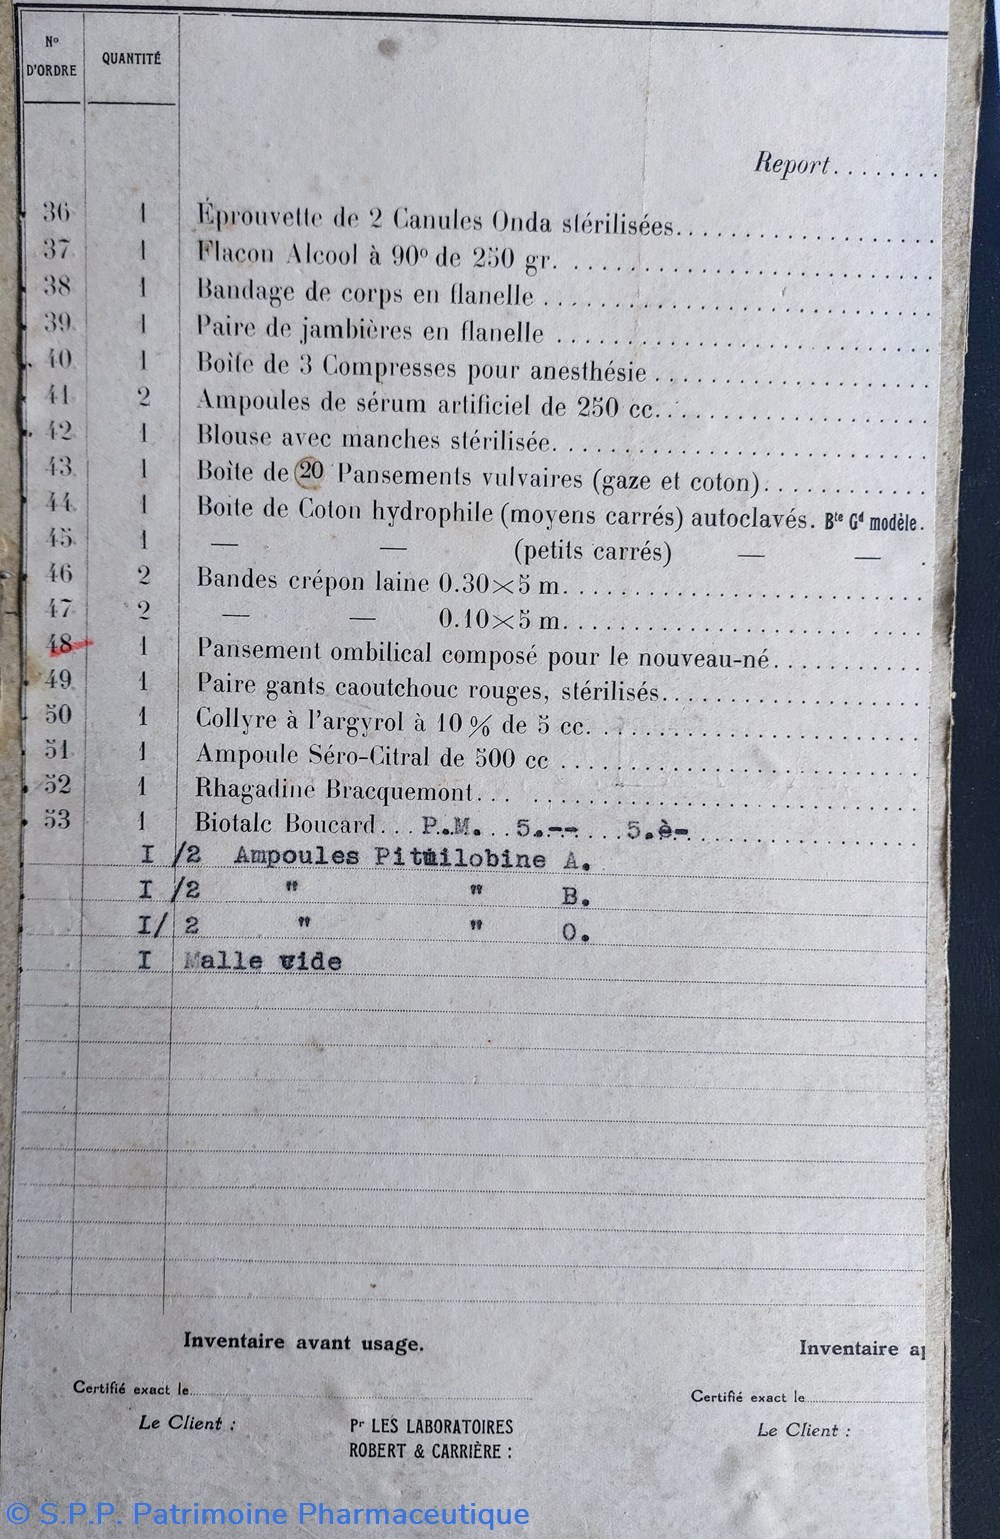 N° D'ORDRE QUANTITÉ
Report........
36 1 Éprouvette de 2 Canules Onda stérilisées
37 1 Flacon Alcool à 90° de 250 gr.
38 1 Bandage de corps en flanelle
39 1 Paire de jambières en flanelle
40 1 Boîte de 3 Compresses pour anesthésie
41 2 Ampoules de sérum artificiel de 250 cc.
42 1 Blouse avec manches stérilisée.
43 1 Boîte de 20 Pansements vulvaires (gaze et coton).
44 1 Boîte de Coton hydrophile (moyens carrés) autoclavés. Bte Gd modèle.
45 1 — — (petits carrés) — —
46 2 Bandes crépon laine 0.30×5 m.
47 2 — — 0.10×5 m.
48 1 Pansement ombilical composé pour le nouveau-né.
49 1 Paire gants caoutchouc rouges, stérilisés.
50 1 Collyre à l'argyrol à 10 % de 5 cc.
51 1 Ampoule Séro-Citral de 500 cc
52 1 Rhagadine Bracquemont.
53 1 Biotalc Boucard... P.M. 5.-- 5.è-
I /2 Ampoules Pituilobine A.
I /2 " " B.
I/ 2 " " O.
I Malle vide
Inventaire avant usage. Inventaire
Certifié exact le Certifié exact le
Le Client : Pr LES LABORATOIRES Le Client :
ROBERT & CARRIÈRE :
© S.P.P. Patrimoine Pharmaceutique